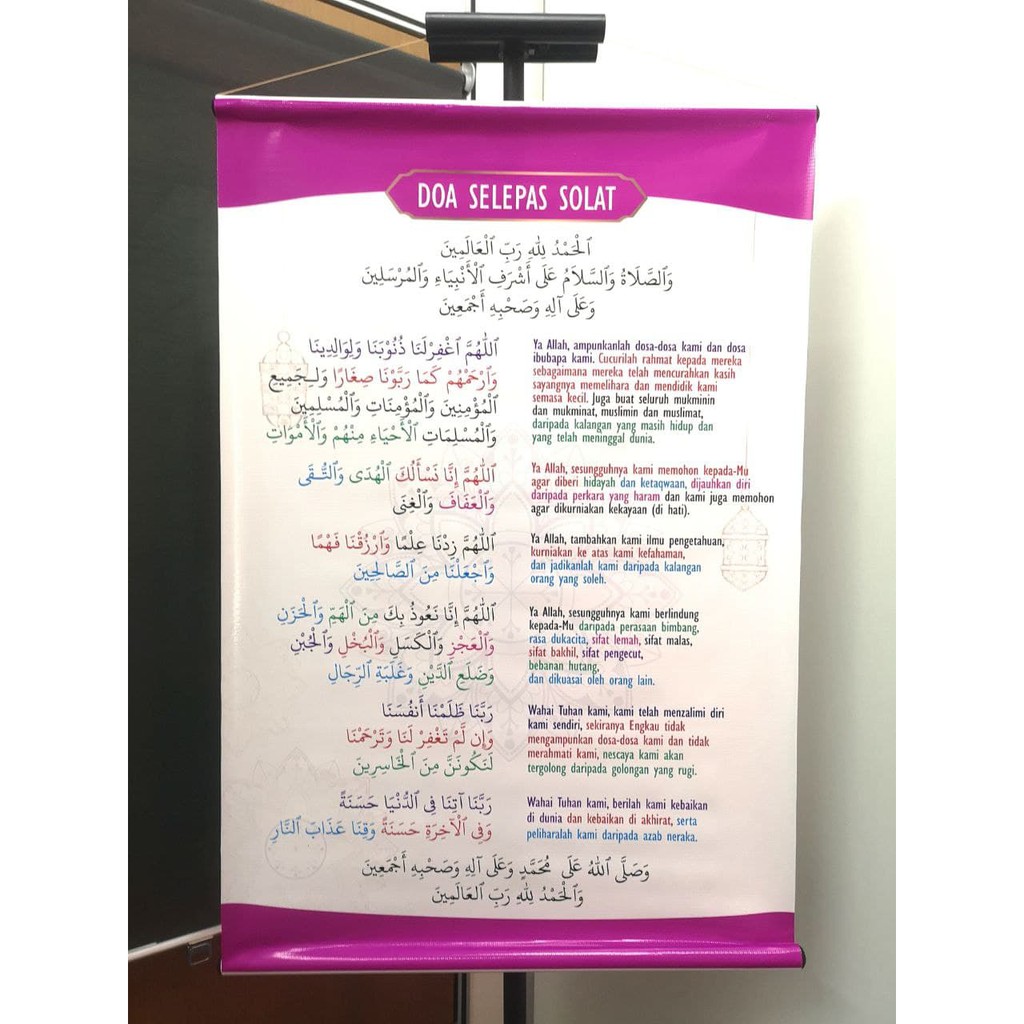 DOA SELEPAS SOLAT
اَلْحَمْدُ لِلَّهِ رَبِّ الْعَالَمِينَ
وَالصَّلَاةُ وَالسَّلَامُ عَلَى أَشْرَفِ الْأَنْبِيَاءِ وَالْمُرْسَلِينَ
وَعَلَى آلِهِ وَصَحْبِهِ أَجْمَعِينَ
اَللَّهُمَّ اغْفِرْلَنَا ذُنُوْبَنَا وَلِوَالِدِينَا
وَارْحَمْهُمْ كَمَا رَبَّوْنَا صِغَارًا وَلِجَمِيعِ
الْمُؤْمِنِينَ وَالْمُؤْمِنَاتِ وَالْمُسْلِمِينَ
وَالْمُسْلِمَاتِ الْأَحْيَاءِ مِنْهُمْ وَالْأَمْوَاتِ
Ya Allah, ampunkanlah dosa-dosa kami dan dosa
ibubapa kami. Cucurilah rahmat kepada mereka
sebagaimana mereka telah mencurahkan kasih
sayangnya memelihara dan mendidik kami
semasa kecil. Juga buat seluruh mukminin
dan mukminat, muslimin dan muslimat,
daripada kalangan yang masih hidup dan
yang telah meninggal dunia.
اَللَّهُمَّ إِنَّا نَسْأَلُكَ الْهُدَى وَالتُّقَى
وَالْعَفَافَ وَالْغِنَى
Ya Allah, sesungguhnya kami memohon kepada-Mu
agar diberi hidayah dan ketaqwaan, dijauhkan diri
daripada perkara yang haram dan kami juga memohon
agar dikurniakan kekayaan (di hati).
اَللَّهُمَّ زِدْنَا عِلْمًا وَارْزُقْنَا فَهْمًا
وَاجْعَلْنَا مِنَ الصَّالِحِينَ
Ya Allah, tambahkan kami ilmu pengetahuan,
kurniakan ke atas kami kefahaman,
dan jadikanlah kami daripada kalangan
orang yang soleh.
اَللَّهُمَّ إِنَّا نَعُوذُ بِكَ مِنَ الْهَمِّ وَالْحَزَنِ
وَالْعَجْزِ وَالْكَسَلِ وَالْبُخْلِ وَالْجُبْنِ
وَضَلَعِ الدَّيْنِ وَغَلَبَةِ الرِّجَالِ
Ya Allah, sesungguhnya kami berlindung
kepada-Mu daripada perasaan bimbang,
rasa dukacita, sifat lemah, sifat malas,
sifat bakhil, sifat pengecut,
bebanan hutang,
dan dikuasai oleh orang lain.
رَبَّنَا ظَلَمْنَا أَنفُسَنَا
وَإِن لَّمْ تَغْفِرْ لَنَا وَتَرْحَمْنَا
لَنَكُونَنَّ مِنَ الْخَاسِرِينَ
Wahai Tuhan kami, kami telah menzalimi diri
kami sendiri, sekiranya Engkau tidak
mengampunkan dosa-dosa kami dan tidak
merahmati kami, nescaya kami akan
tergolong daripada golongan yang rugi.
رَبَّنَا آتِنَا فِي الدُّنْيَا حَسَنَةً
وَفِي الْآخِرَةِ حَسَنَةً وَقِنَا عَذَابَ النَّارِ
Wahai Tuhan kami, berilah kami kebaikan
di dunia dan kebaikan di akhirat, serta
peliharalah kami daripada azab neraka.
وَصَلَّى اللَّهُ عَلَى مُحَمَّدٍ وَعَلَى آلِهِ وَصَحْبِهِ أَجْمَعِينَ
وَالْحَمْدُ لِلَّهِ رَبِّ الْعَالَمِينَ